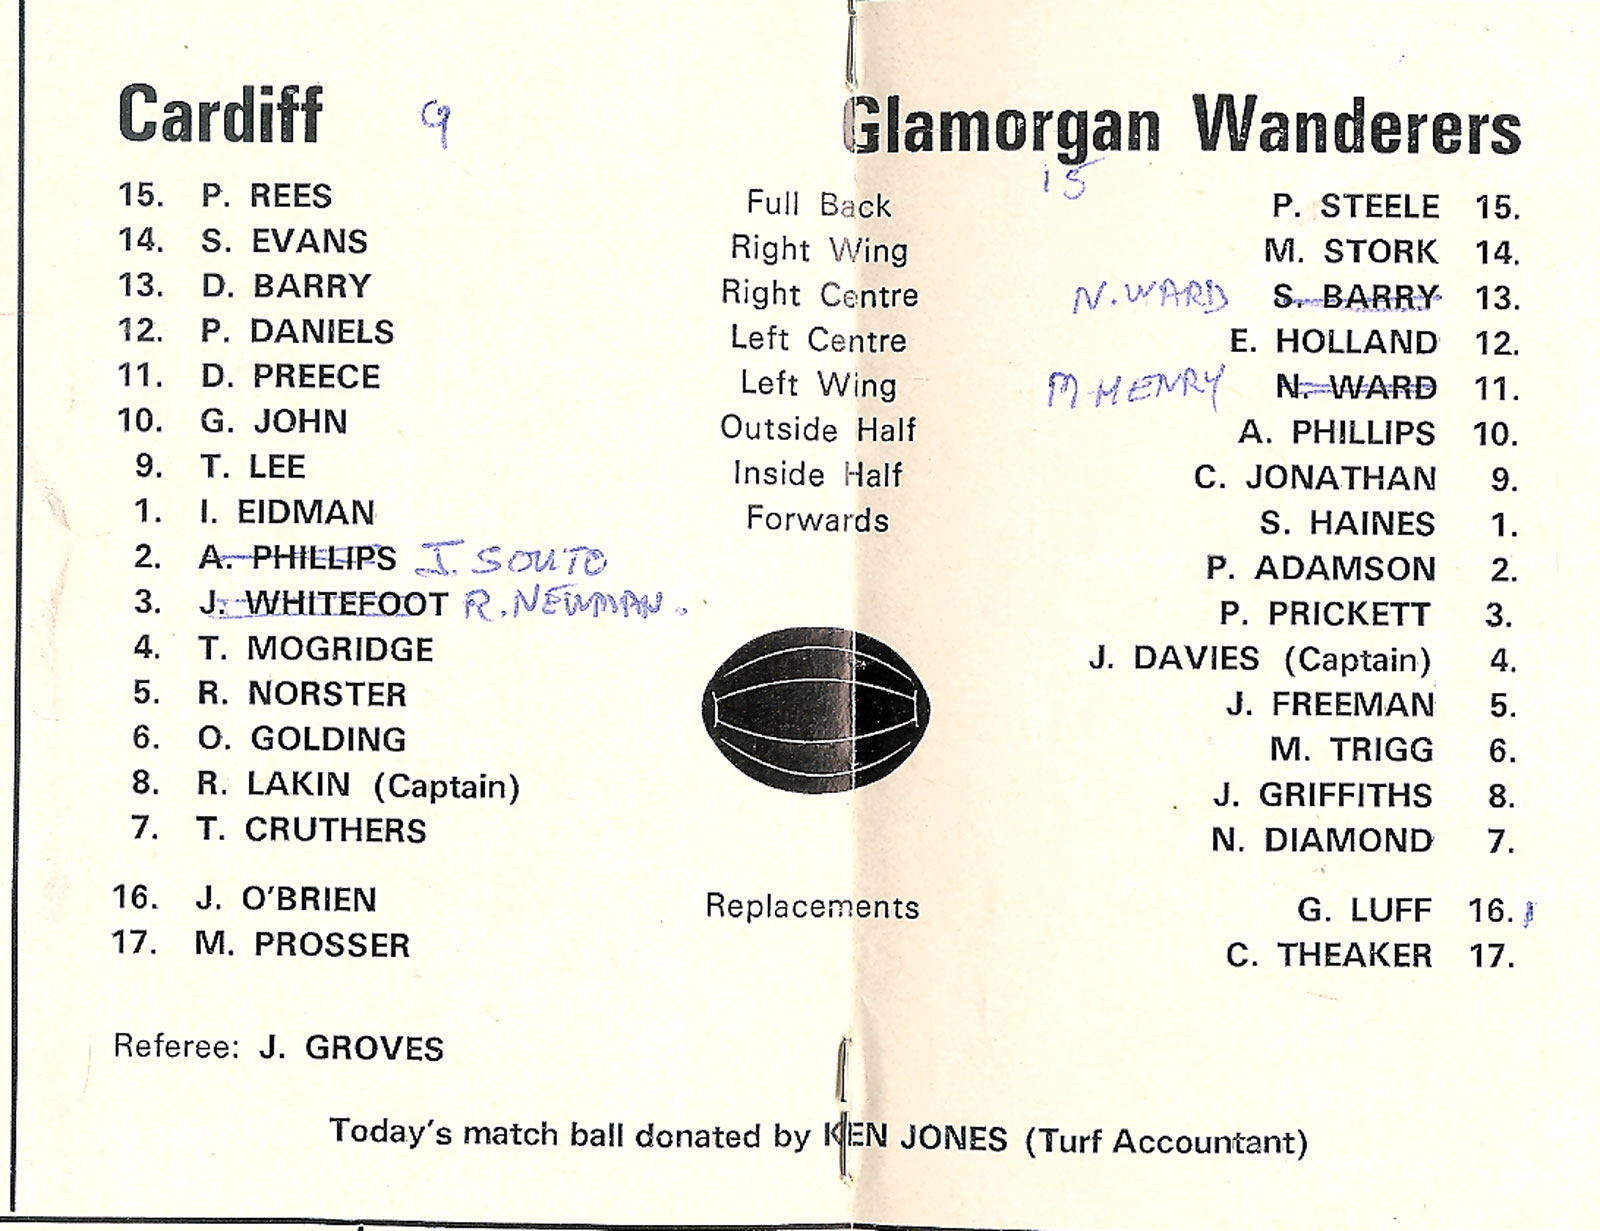 Cardiff 9 Glamorgan Wanderers 15
15. P. REES Full Back P. STEELE 15.
14. S. EVANS Right Wing M. STORK 14.
13. D. BARRY Right Centre N. WARD S. BARRY 13.
12. P. DANIELS Left Centre E. HOLLAND 12.
11. D. PREECE Left Wing M HENRY N. WARD 11.
10. G. JOHN Outside Half A. PHILLIPS 10.
9. T. LEE Inside Half C. JONATHAN 9.
1. I. EIDMAN Forwards S. HAINES 1.
2. A. PHILLIPS J. SOUTO P. ADAMSON 2.
3. J. WHITEFOOT R. NEWMAN. P. PRICKETT 3.
4. T. MOGRIDGE J. DAVIES (Captain) 4.
5. R. NORSTER J. FREEMAN 5.
6. O. GOLDING M. TRIGG 6.
8. R. LAKIN (Captain) J. GRIFFITHS 8.
7. T. CRUTHERS N. DIAMOND 7.
16. J. O'BRIEN Replacements G. LUFF 16.
17. M. PROSSER C. THEAKER 17.
Referee: J. GROVES
Today's match ball donated by KEN JONES (Turf Accountant)